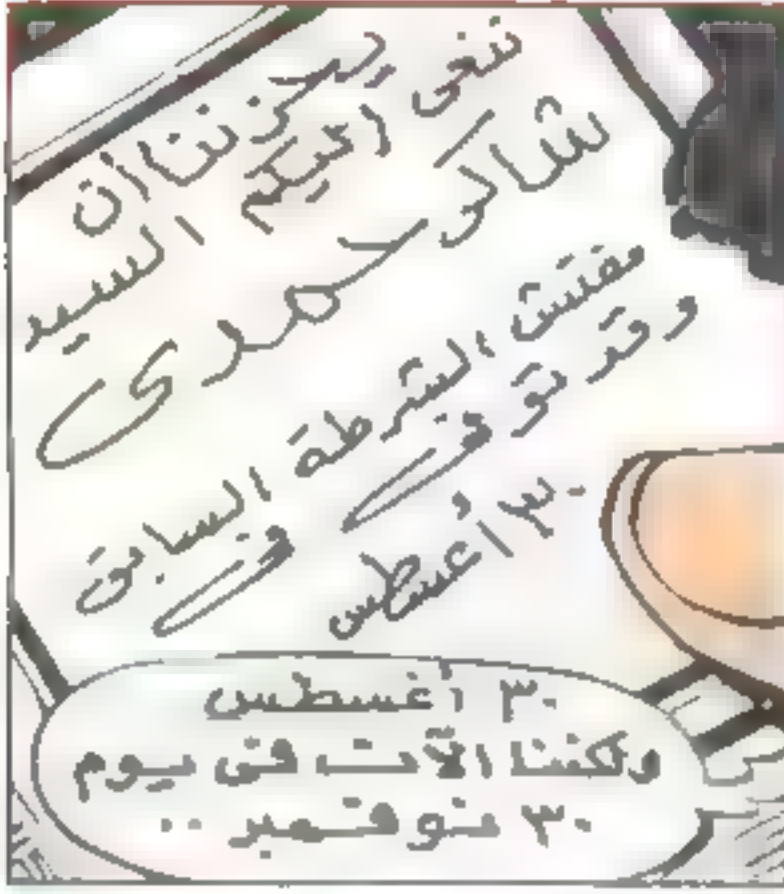 يحزننا أن
ننعى إليكم السيد
شاكر حمدى
مفتش الشرطة السابق
وقد توفى فى
٣٠ أغسطس
٣٠ أغسطس
ولكننا الآن فى يوم
٣٠ نوفمبر ..